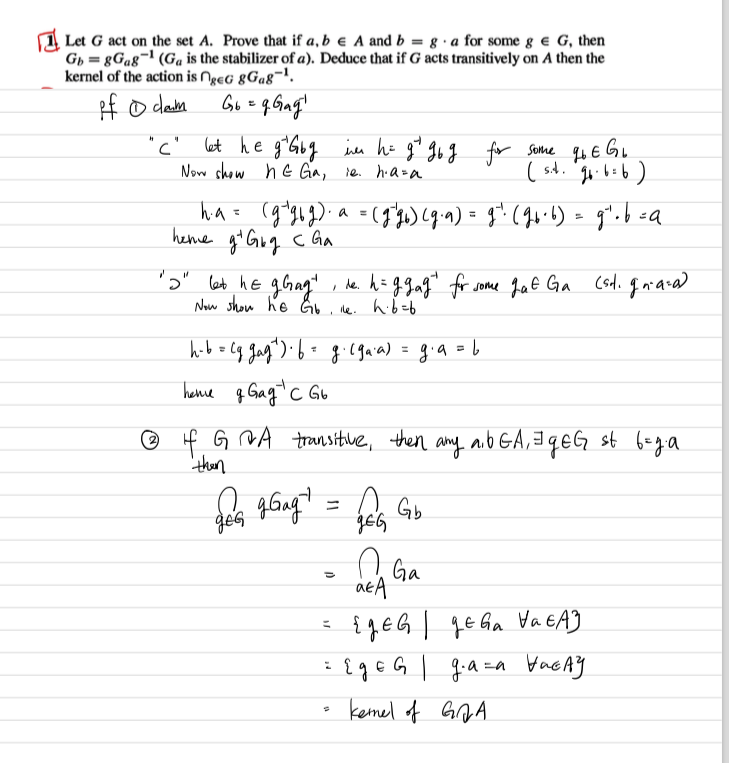 1. Let G act on the set A. Prove that if a, b ∈ A and b = g · a for some g ∈ G, then
G_b = gG_ag⁻¹ (G_a is the stabilizer of a). Deduce that if G acts transitively on A then the
kernel of the action is ⋂_{g∈G} gG_ag⁻¹.
pf ① claim G_b = gG_ag⁻¹
"⊂" let h ∈ g⁻¹G_bg h = g⁻¹g_bg for some g_b ∈ G_b
Now show h ∈ G_a, ie. h·a = a (s.t. g_b·b = b)
h·a = (g⁻¹g_bg)·a = (g⁻¹g_b)(g·a) = g⁻¹·(g_b·b) = g⁻¹·b = a
hence g⁻¹G_bg ⊂ G_a
"⊃" let h ∈ gG_ag⁻¹, ie. h = gg_ag⁻¹ for some g_a ∈ G_a (s.t. g_a·a = a)
Now show h ∈ G_b, ie. h·b = b
h·b = (gg_ag⁻¹)·b = g·(g_a·a) = g·a = b
hence gG_ag⁻¹ ⊂ G_b
② If G ↷ A transitive, then any a,b ∈ A, ∃ g ∈ G st b = g·a
then
⋂_{g∈G} gG_ag⁻¹ = ⋂_{g∈G} G_b
= ⋂_{a∈A} G_a
= {g ∈ G | g ∈ G_a ∀a ∈ A}
= {g ∈ G | g·a = a ∀a ∈ A}
= kernel of G ↷ A